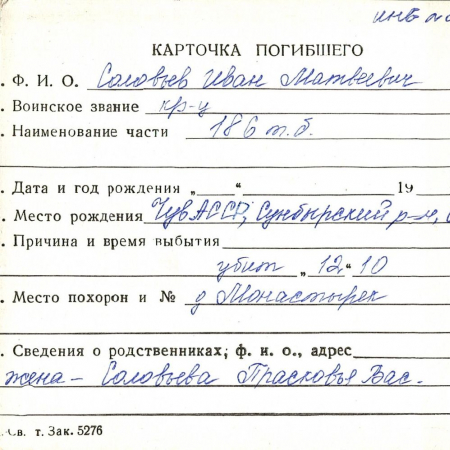 инв №
КАРТОЧКА ПОГИБШЕГО
. Ф. И. О. Соловьев Иван Матвеевич
. Воинское звание кр-ц
. Наименование части 186 т.б.
. Дата и год рождения „ “ 19
. Место рождения ЧувАССР, Сундырский р-н,
. Причина и время выбытия
убит „12“ 10
. Место похорон и № д Монастырек
. Сведения о родственниках, ф. и. о., адрес
жена – Соловьева Прасковья Вас.
Св. т. Зак. 5276